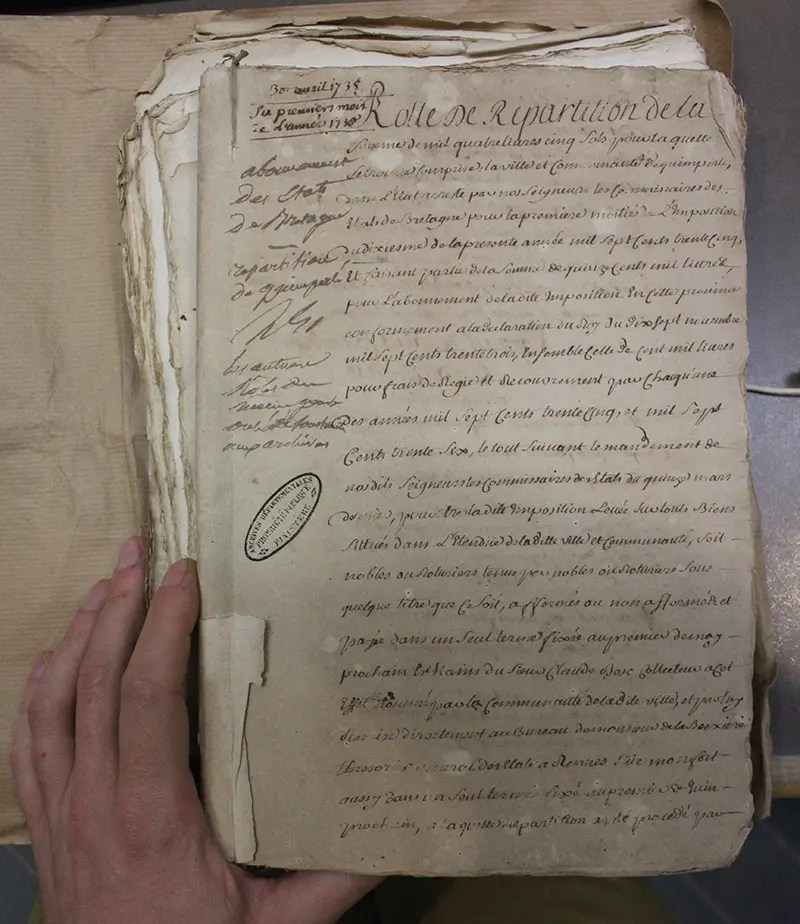 30 avril 1735
Six premiers mois
de L'année 1735
abonnement
des Etats
de Bretagne
repartition
de quimperlé
les autres
Roles du
aux archives
ARCHIVES DÉPARTEMENTALES
PROPRIÉTÉ PUBLIQUE
FINISTÈRE
Rolle De Répartition de la
Somme de mil quatre livres cinq Sols pour la quelle
se trouve Comprise la ville et Communauté de quimperlé,
dans L'Etat arresté par nos Seigneurs les Commissaires des
Etats de Bretagne pour la premiere moitié de L'Imposition
du dixiesme de la presente année mil Sept Cents trente Cinq,
Et faisant partie de la Somme de quinze Cents mil livres,
pour L'abonnement de la dite Imposition En Cette province
conformement a la declaration du Roy du dix Sept novembre
mil Sept Cents trente trois, Ensemble Celle de Cent mil livres
pour frais de Regie et de recouvrement pour Chacqu'une
Des années mil Sept Cents trente Cinq, et mil Sept
Cents trente Six, le tout Suivant le mandement de
nos dits Seigneurs les Commissaires des Etats du quinze mars
dernier, pour Etre la dite Imposition Levée Sur touts Biens
Sittués dans L'Etendue de la ditte ville et Communauté, Soit
nobles ou Roturiers tenus par nobles ou Roturiers Sous
quelque titre que Ce Soit, affermés ou non affermés et
payée dans un Seul terme fixée au premier de may
prochain Es Mains du Sieur Claude Collecteur a Cet
Effet nommé par la Communauté de la dite ville, et par luy
directement au Bureau de monsieur de la Boissiere
thresorier general des Etats a Rennes
aussy dans un Seul terme fixé au premier de Juin
prochain, a la quelle repartition a été procédé par